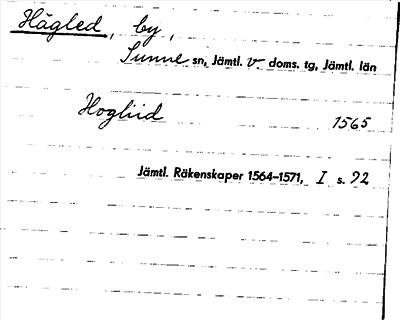 Hägled, by,
Sunne sn, Jämtl. v doms. tg, Jämtl. län
Hogliid 1565
Jämtl. Räkenskaper 1564-1571, I s. 92